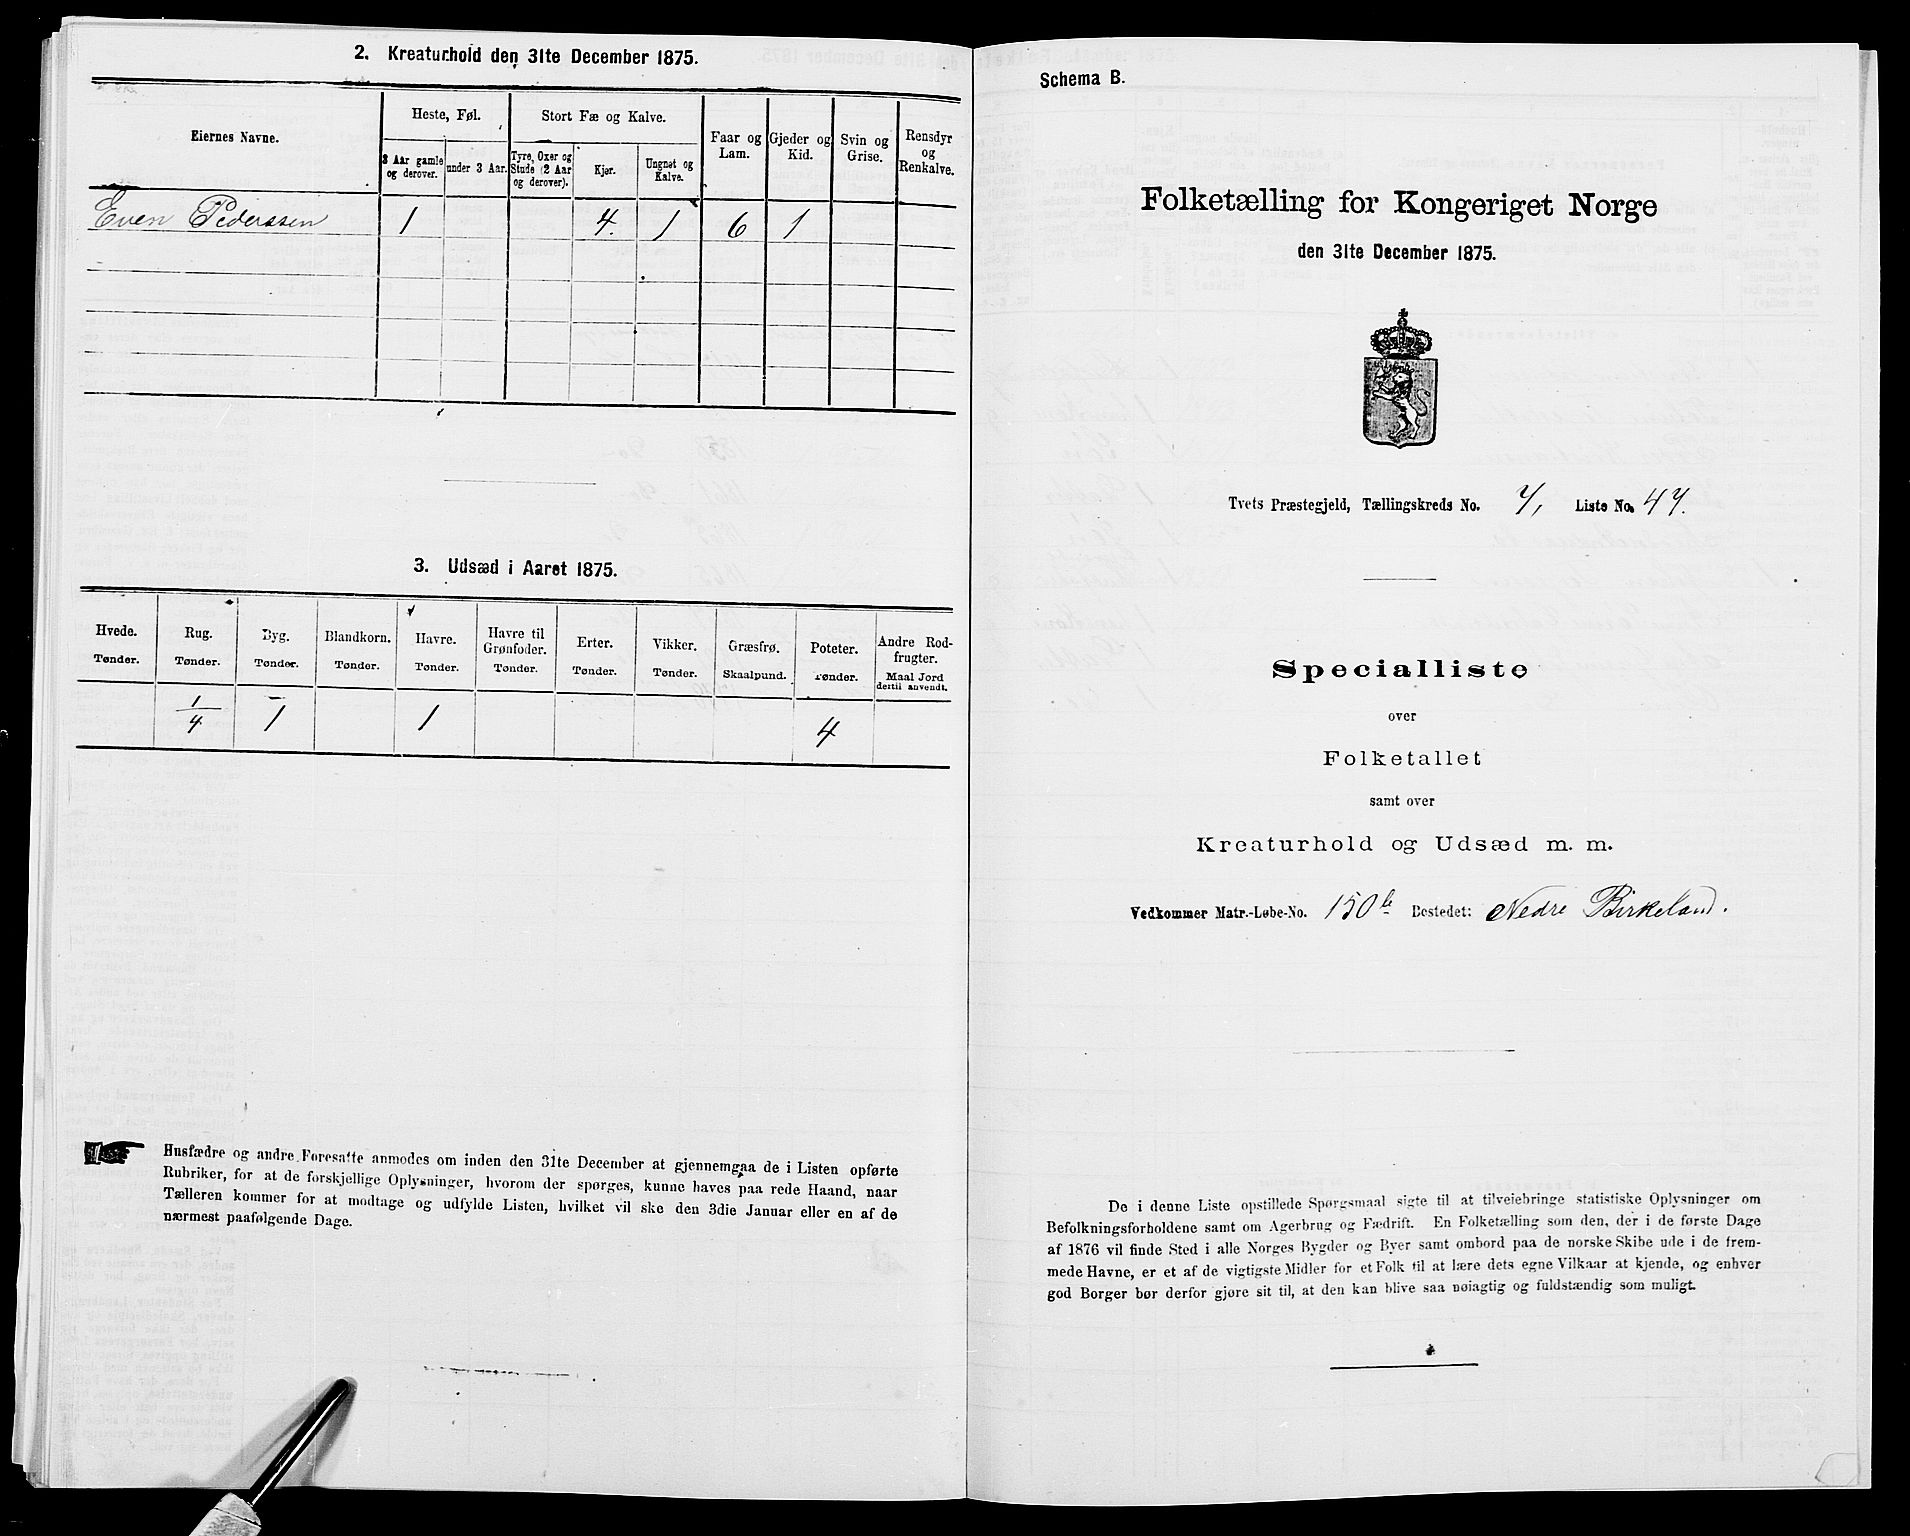 2. Kreaturhold den 31te December 1875.
Eiernes Navne.
Heste, Føl.
Stort Fæ og Kalve.
Faar og Lam.
Gjeder og Kid.
Svin og Grise.
Rensdyr og Renkalve.
3 Aar gamle og derover.
under 3 Aar.
Tyre, Oxer og Stude (2 Aar og derover).
Kjør.
Ungnøt og Kalve.
Even Pederssen 1 4. 1 6 1
3. Udsæd i Aaret 1875.
Hvede. Rug. Byg. Blandkorn. Havre. Havre til Grønfoder. Erter. Vikker. Græsfrø. Poteter. Andre Rodfrugter.
Tønder. Tønder. Tønder. Tønder. Tønder. Tønder. Tønder. Tønder. Skaalpund. Tønder. Maal Jord dertil anvendt.
1/4 1 1 4
Husfædre og andre Foresatte anmodes om inden den 31te December at gjennemgaa de i Listen opførte
Rubriker, for at de forskjellige Oplysninger, hvorom der spørges, kunne haves paa rede Haand, naar
Tælleren kommer for at modtage og udfylde Listen, hvilket vil ske den 3die Januar eller en af de
nærmest paafølgende Dage.
Schema B.
Folketælling for Kongeriget Norge
den 31te December 1875.
Tvets Præstegjeld, Tællingskreds No. 7, Liste No. 47.
Specialliste
over
Folketallet
samt over
Kreaturhold og Udsæd m. m.
Vedkommer Matr.-Løbe-No. 150 b Bostedet: Nedre Birkeland.
De i denne Liste opstillede Spørgsmaal sigte til at tilveiebringe statistiske Oplysninger om
Befolkningsforholdene samt om Agerbrug og Fædrift. En Folketælling som den, der i de første Dage
af 1876 vil finde Sted i alle Norges Bygder og Byer samt ombord paa de norske Skibe ude i de frem-
mede Havne, er et af de vigtigste Midler for et Folk til at lære dets egne Vilkaar at kjende, og enhver
god Borger bør derfor gjøre sit til, at den kan blive saa nøiagtig og fuldstændig som muligt.